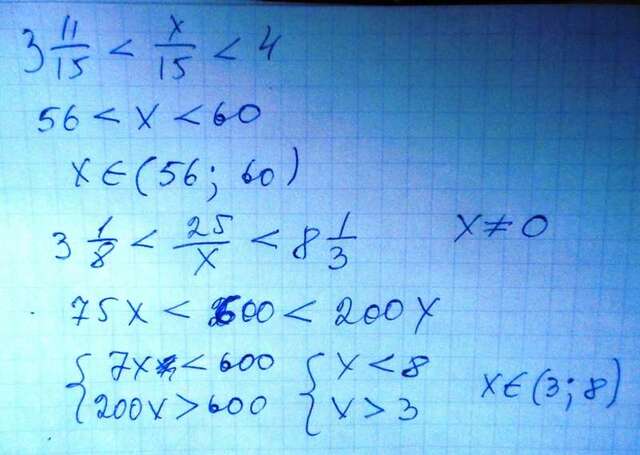 3 11/15 < x/15 < 4
56 < x < 60
x ∈ (56; 60)
3 1/8 < 25/x < 8 1/3 x ≠ 0
75x < 600 < 200x
{ 7x < 600 { x < 8
{ 200x > 600 { x > 3 x ∈ (3; 8)